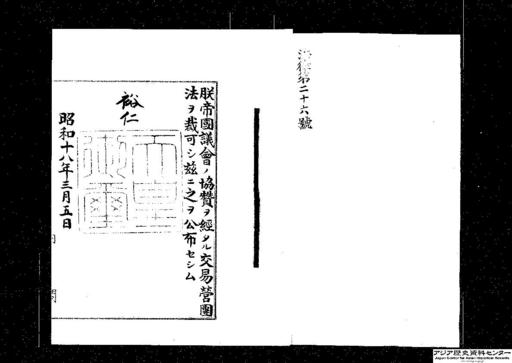 法律第二十六號
朕帝國議會ノ協贊ヲ經タル交易營團
法ヲ裁可シ茲ニ之ヲ公布セシム
裕仁
天皇御璽
昭和十八年三月五日
アジア歴史資料センター
Japan Center for Asian Historical Records